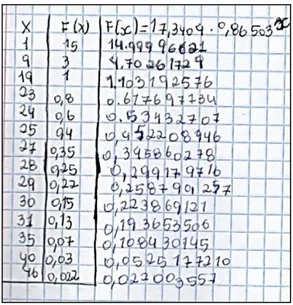 X F(x) F(x)=17,3409·0,86503^x
1 15 14.99996621
9 3 4.70261729
19 1 1,103192576
23 0,8 0.617697734
24 0,6 0.53432707
25 0,4 0,452208946
27 0,35 0,345860278
28 0,25 0,299179716
29 0,22 0,258791257
30 0,15 0,223869121
31 0,13 0,193653506
35 0,07 0,108430145
40 0,03 0,0525177210
46 0,022 0,022003557